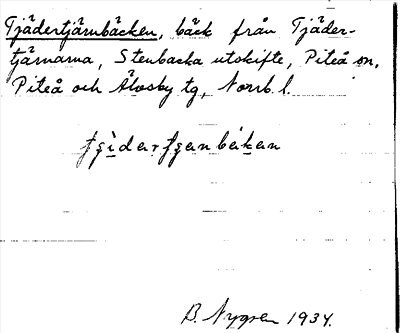 Tjädertjärnbäcken, bäck från Tjäder-
tjärnarna, Stenbacka utskifte, Piteå sn,
Piteå och Älvsby tg, Norrb. l.
B. Nygren 1934.